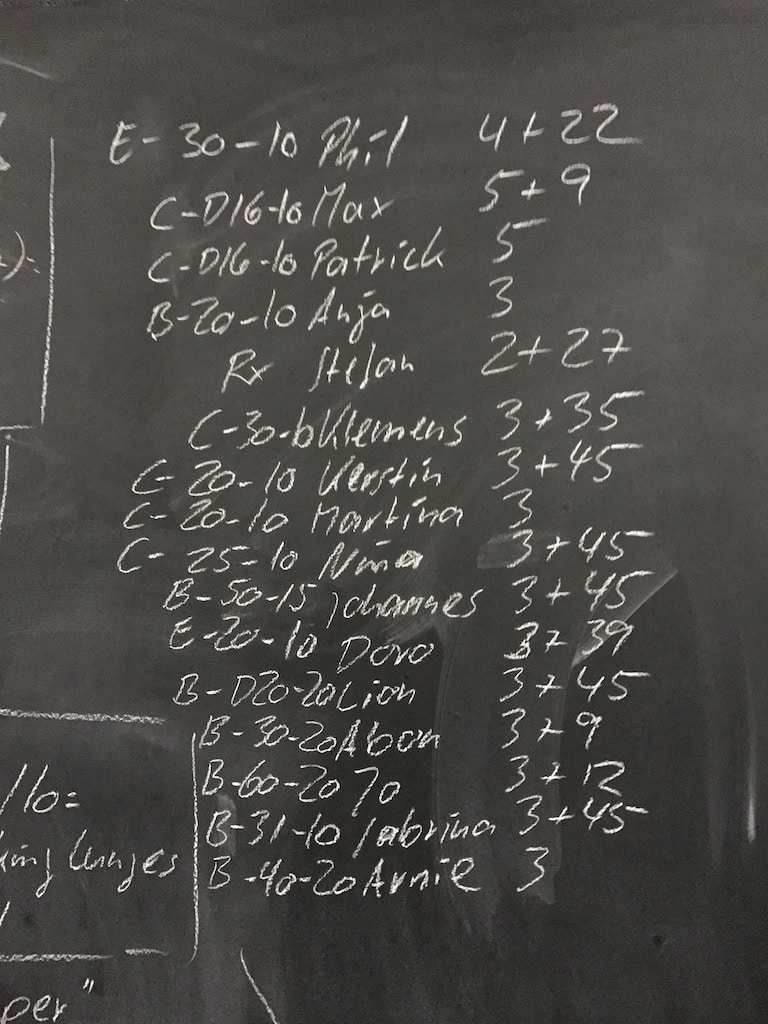 E-30-10 Phil 4+22
C-D16-10 Max 5+9
C-D16-10 Patrick 5
B-20-10 Anja 3
Rx Stefan 2+27
C-30-10 Klemens 3+35
C-20-10 Kerstin 3+45
C-20-10 Martina 3
C-25-10 Nina 3+45
B-50-15 Johannes 3+45
E-20-10 Doro 3+39
B-D20-20 Lion 3+45
B-30-20 3+9
B-60-20 Jo 3+12
B-31-10 Sabrina 3+45
B-40-20 Arnie 3
/10=
king lunges
per"